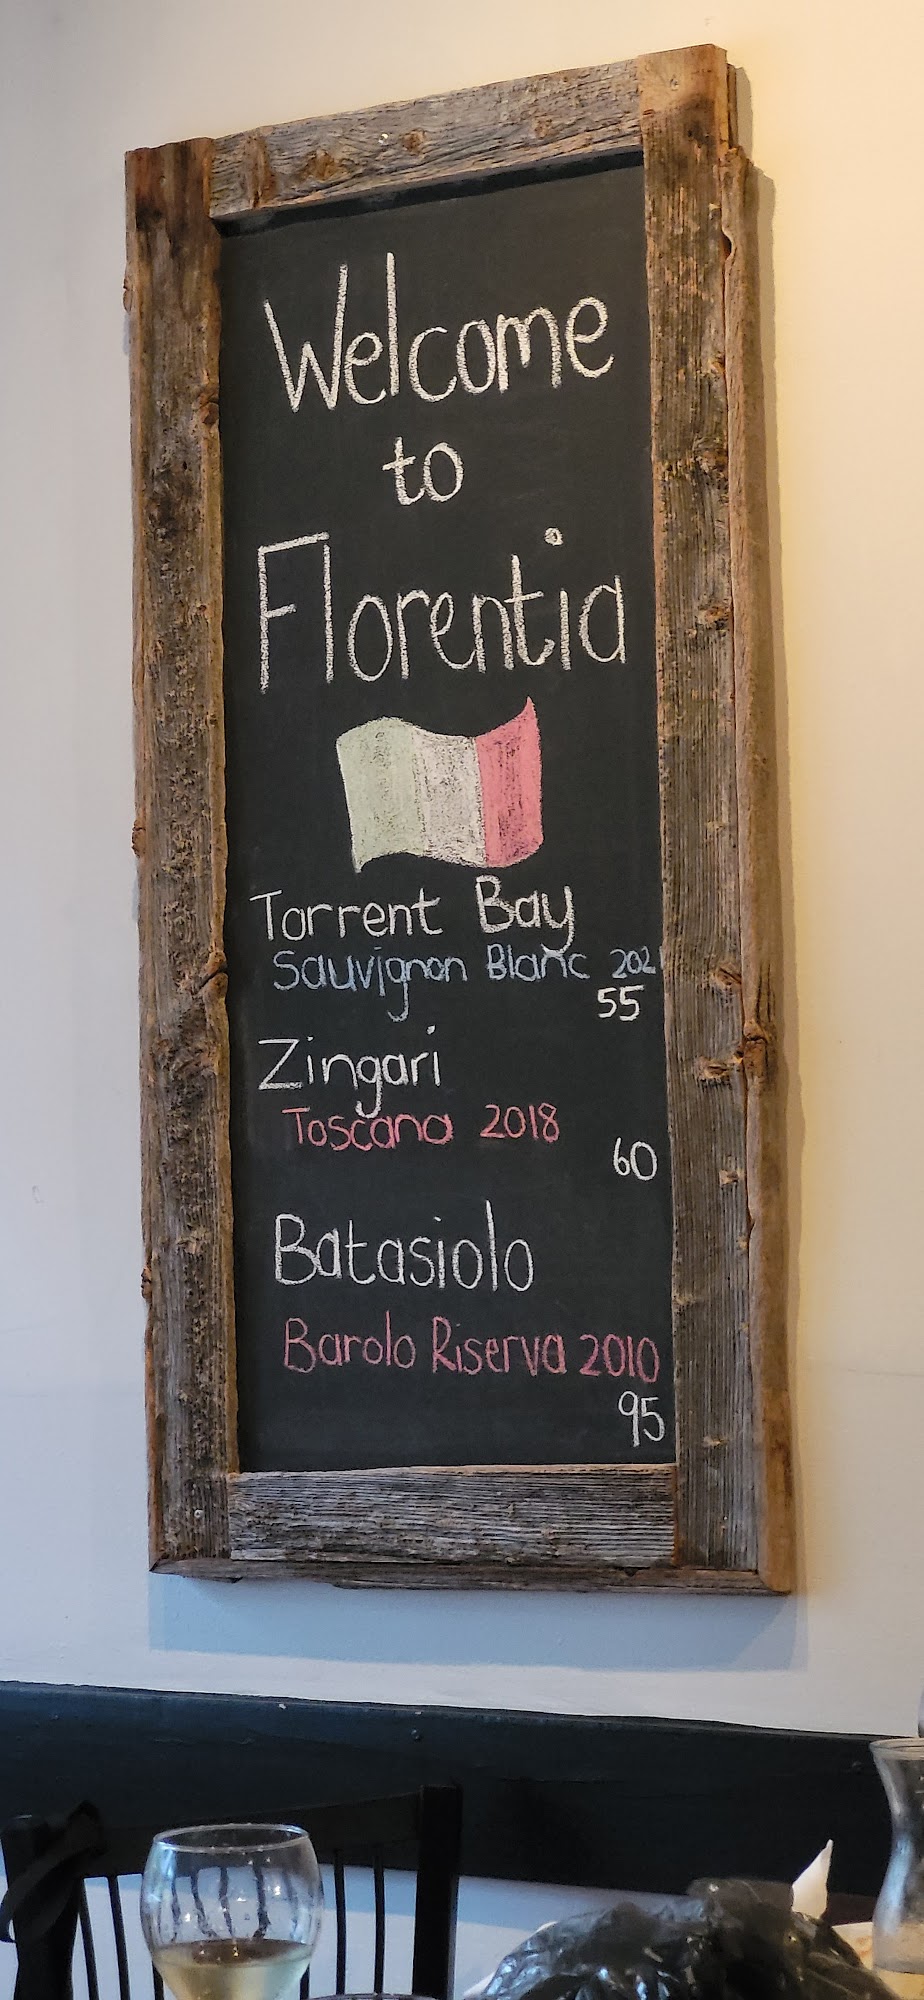 Welcome
to
Florentia
Torrent Bay
Sauvignon Blanc 2021
55
Zingari
Toscana 2018
60
Batasiolo
Barolo Riserva 2010
95